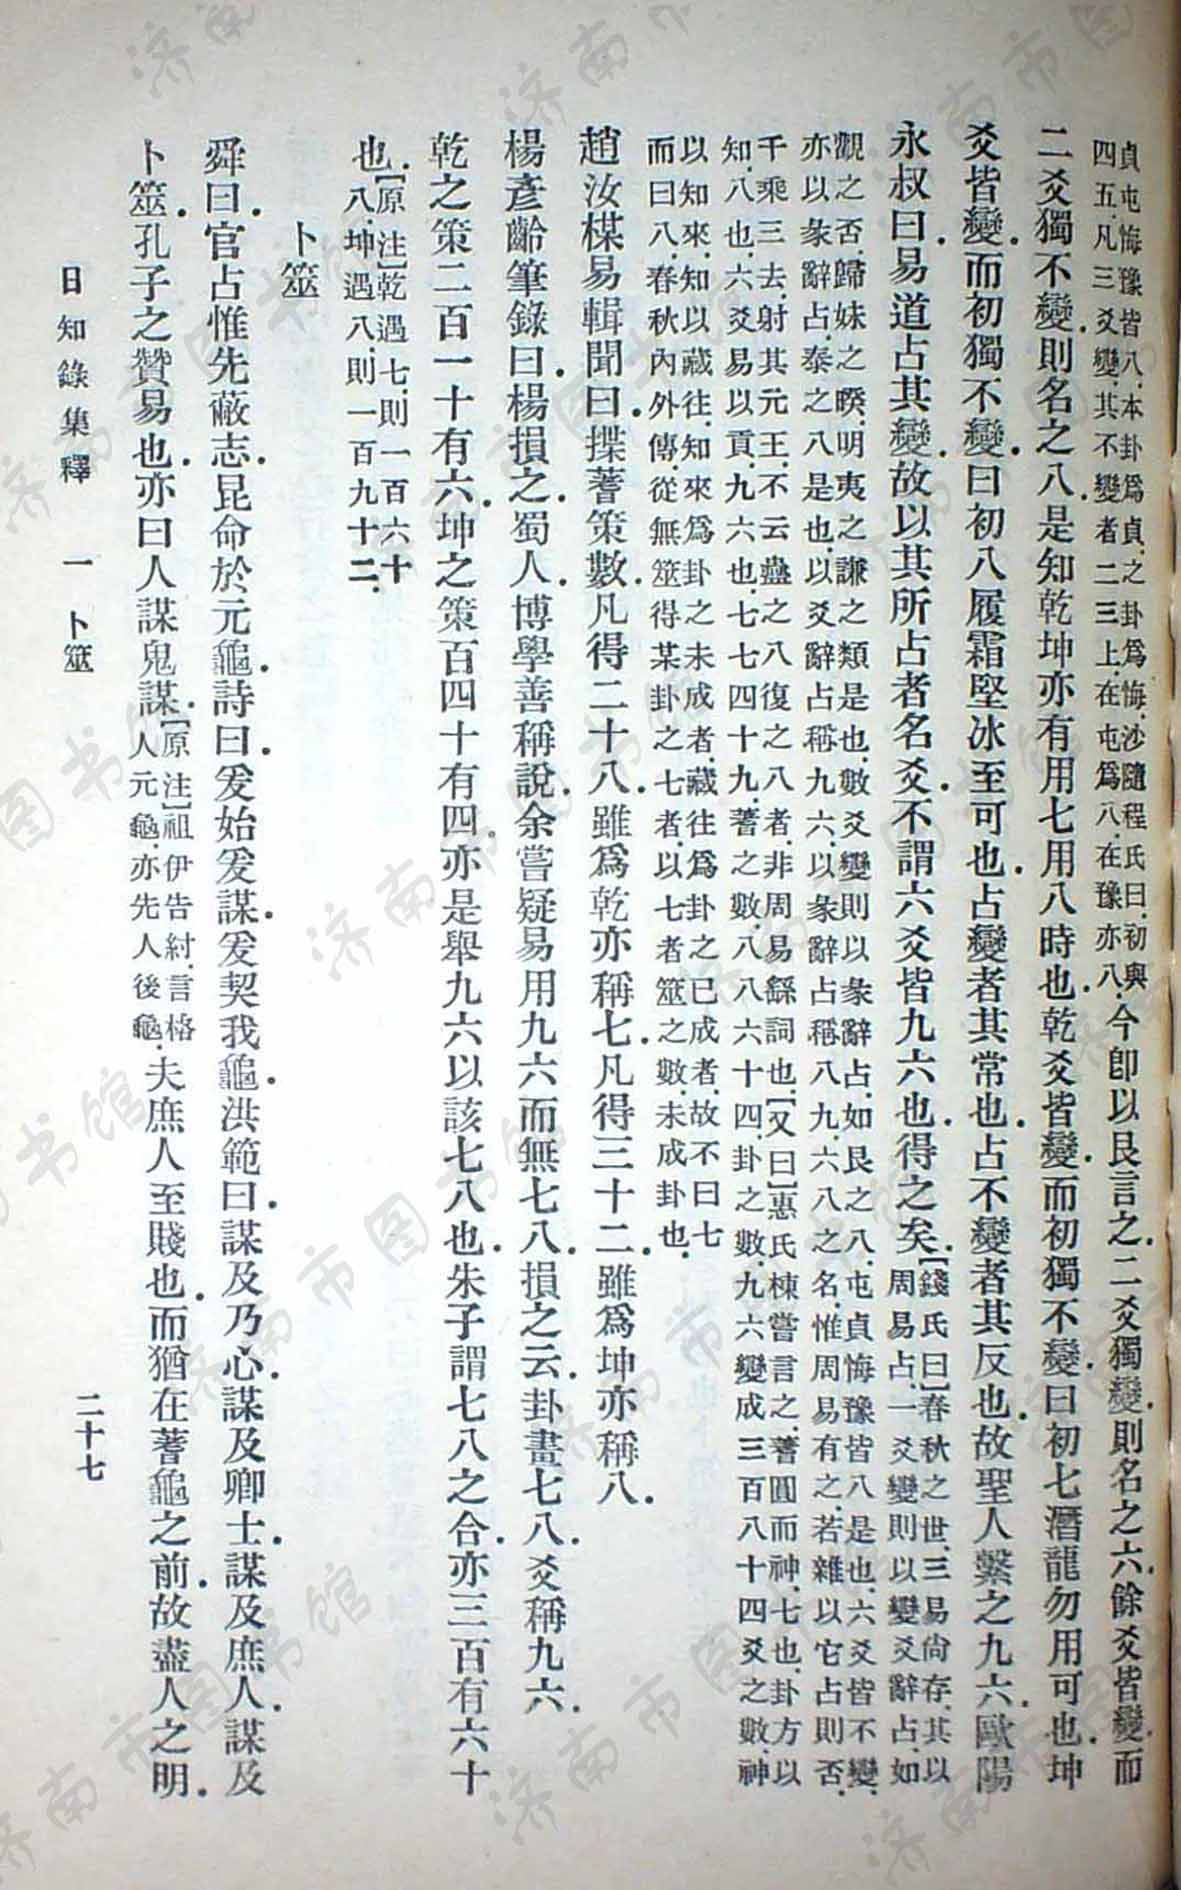 貞屯悔豫皆八.本卦爲貞.之卦爲悔.沙隨程氏曰.初與
四五.凡三爻變.其不變者二三上.在屯爲八.在豫亦八.
今卽以艮言之.二爻獨變.則名之六.餘爻皆變.而
二爻獨不變.則名之八.是知乾坤亦有用七用八時也.乾爻皆變.而初獨不變.曰初七潛龍勿用可也.坤
爻皆變.而初獨不變.曰初八履霜堅冰至可也.占變者其常也.占不變者其反也.故聖人繫之九六.歐陽
永叔曰.易道占其變.故以其所占者名爻.不謂六爻皆九六也.得之矣.
[錢氏曰]春秋之世.三易尙存.其以
周易占.一爻變則以變爻辭占.如
觀之否.歸妹之睽.明夷之謙之類是也.數爻變則以彖辭占.如艮之八.屯貞悔豫皆八是也.六爻皆不變.
亦以彖辭占.泰之八是也.以爻辭占稱九六.以彖辭占稱八九.六八之名.惟周易有之.若雜以它占則否.
千乘三去.射其元王.不云蠱之八.復之八者.非周易繇詞也.[又曰]惠氏棟嘗言之.蓍圓而神.七也.卦方以
知.八也.六爻易以貢.九六也.七七四十九.蓍之數.八八六十四.卦之數.九六變成三百八十四爻之數.神
以知來.知以藏往.知來爲卦之未成者.藏往爲卦之已成者.故不曰七
而曰八.春秋內外傳.從無筮得某卦之七者.以七者筮之數.未成卦也.
趙汝楳易輯聞曰.揲蓍策數.凡得二十八.雖爲乾亦稱七.凡得三十二.雖爲坤亦稱八.
楊彥齡筆錄曰.楊損之.蜀人.博學善稱說.余嘗疑易用九六而無七八.損之云.卦畫七八.爻稱九六.
乾之策二百一十有六.坤之策百四十有四.亦是舉九六以該七八也.朱子謂七八之合.亦三百有六十
也.
[原注]乾遇七.則一百六十
八.坤遇八.則一百九十二.
卜筮
舜曰.官占惟先蔽志.昆命於元龜.詩曰.爰始爰謀.爰契我龜.洪範曰.謀及乃心.謀及卿士.謀及庶人.謀及
卜筮.孔子之贊易也.亦曰人謀鬼謀.
[原注]祖伊告紂.言格
人元龜.亦先人後龜.
夫庶人至賤也.而猶在蓍龜之前.故盡人之明.
日知錄集釋 一 卜筮 二十七
济南市图书馆